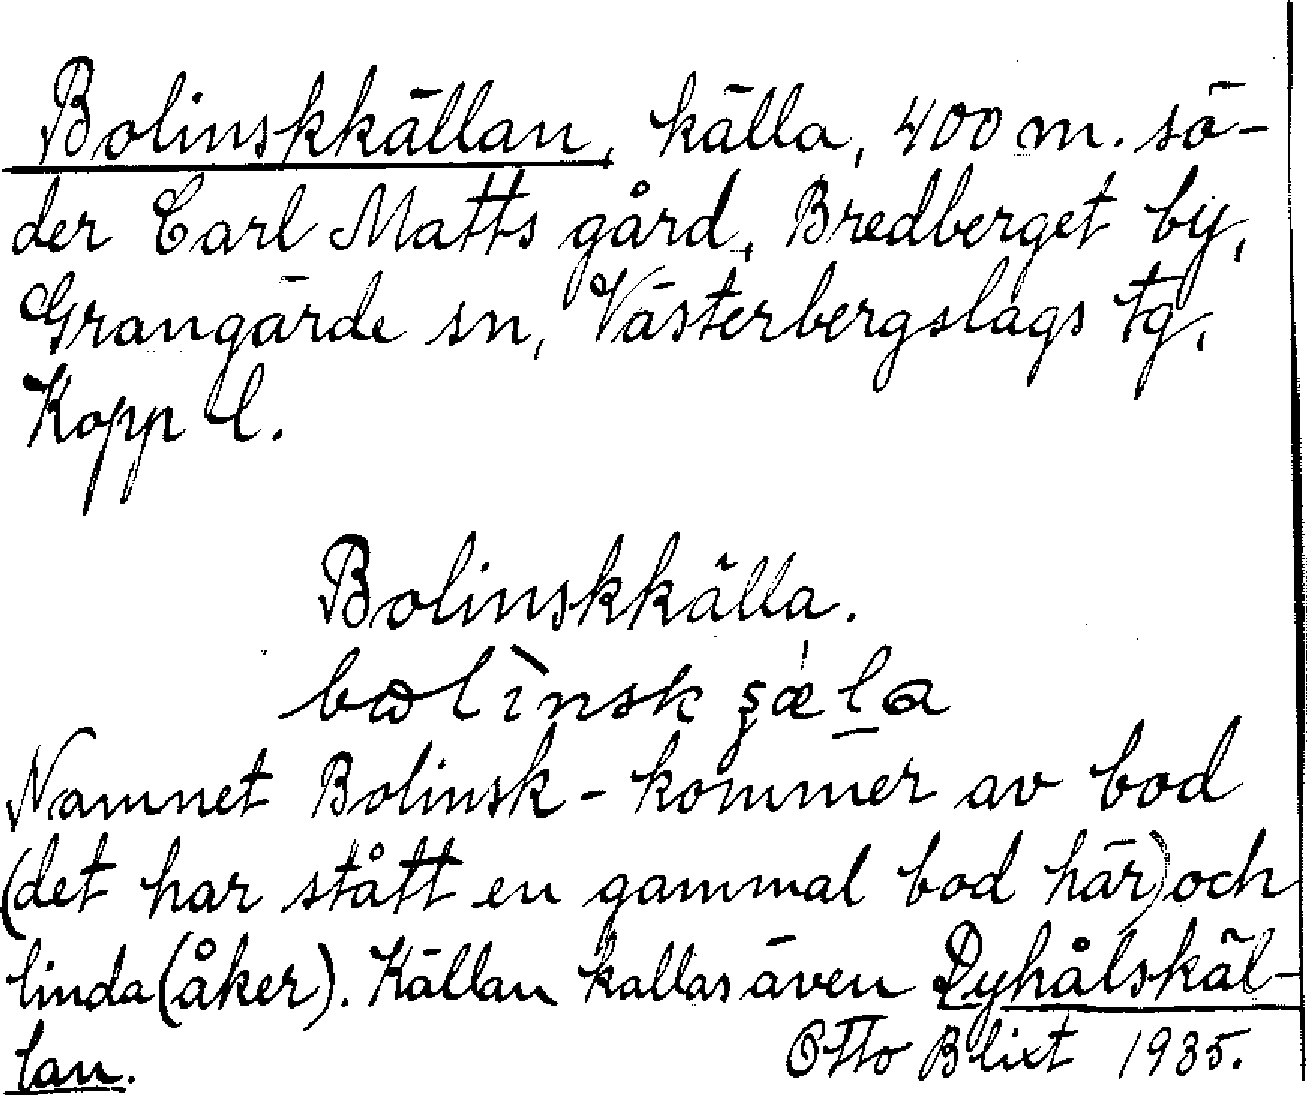 Bolinskkällan, källa, 400 m. sö-
der Carl Matts gård, Bredberget by,
Grangärde sn, Västerbergslags tg,
Kopp l.
Bolinskkälla.
bωlìnsk ʂæ̍la
Namnet Bolinsk- kommer av bod
(det har stått en gammal bod här) och
linda (åker). Källan kallas även Dyhålskäl-
lan.
Otto Blixt 1935.